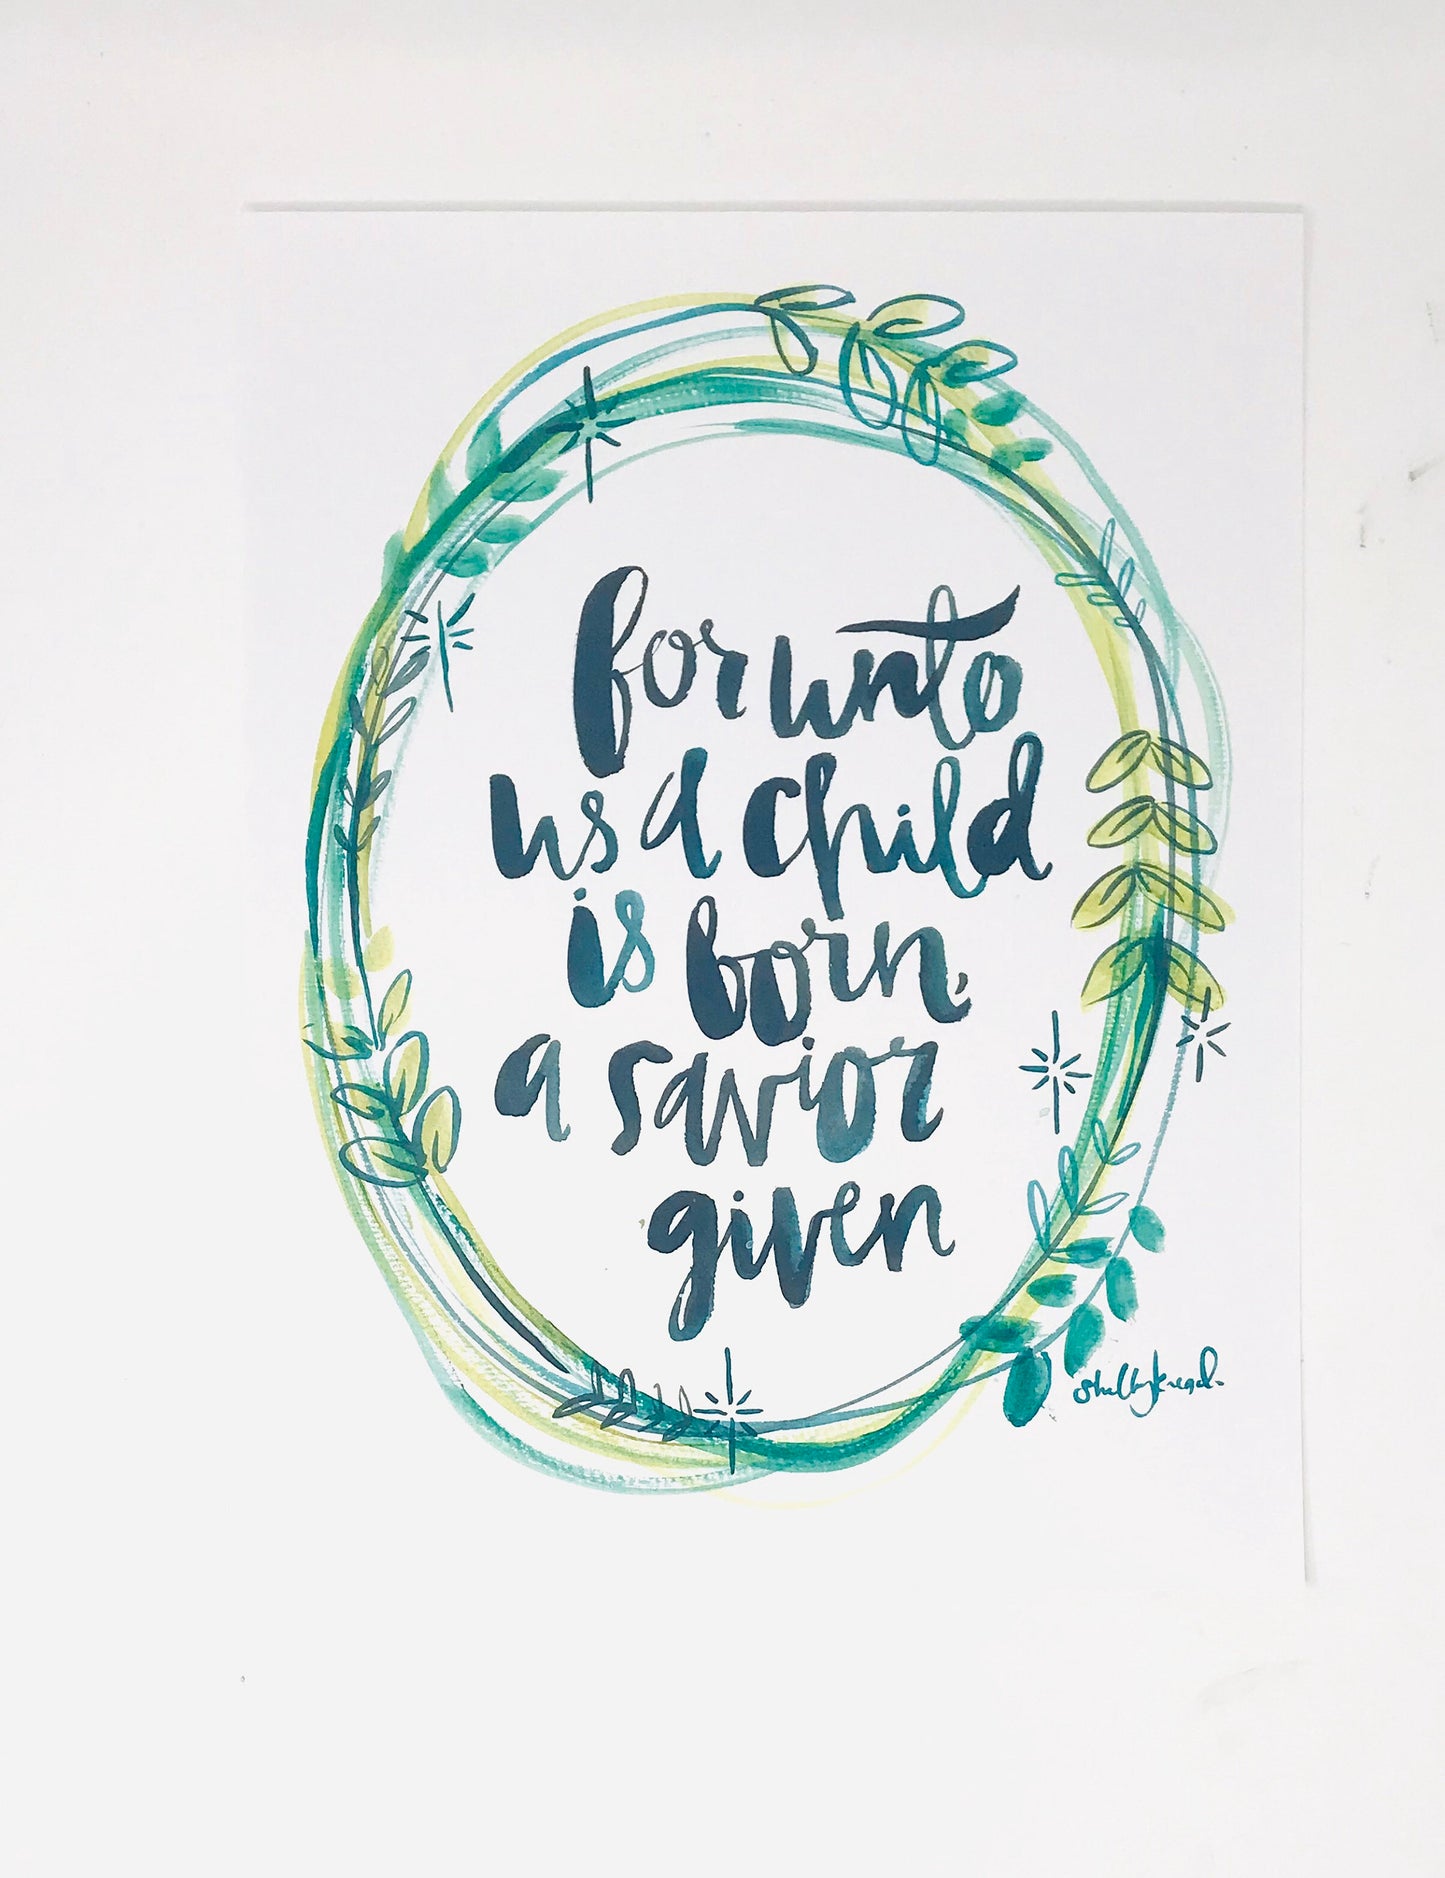 for unto
us a child
is born,
a savior
given